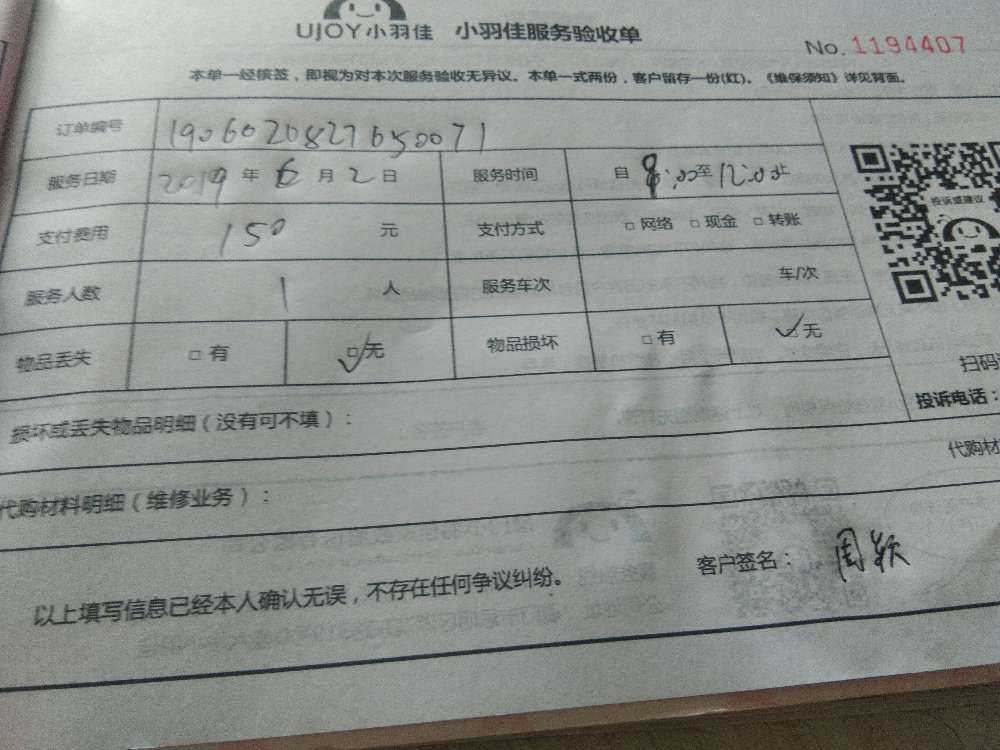 UJOY小羽佳 小羽佳服务验收单
No. 1194407
本单一经核签，即视为对本次服务验收无异议。本单一式两份，客户留存一份(红)。《维保须知》详见背面。
订单编号 1906020827650071
服务日期 2019 年 6 月 2 日 服务时间 自 8:00 至 12:00 止
支付费用 150 元 支付方式 □ 网络 □ 现金 □ 转账
服务人数 1 人 服务车次 车/次
物品丢失 □ 有 ☑ 无 物品损坏 □ 有 ✓ 无
投诉或建议
扫码
投诉电话：
损坏或丢失物品明细（没有可不填）：
代购材
代购材料明细（维修业务）：
以上填写信息已经本人确认无误，不存在任何争议纠纷。 客户签名： 周颖